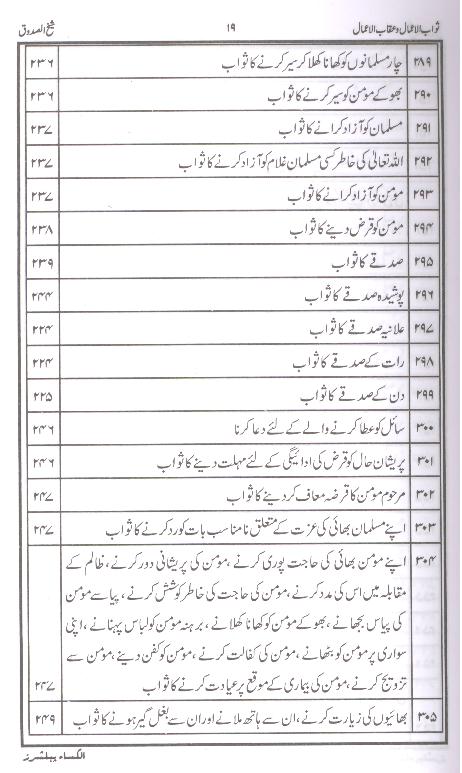 ثواب الاعمال وعقاب الاعمال ۱۹ شیخ الصدوق
۲۸۹ چار مسلمانوں کو کھانا کھلا کر سیر کرنے کا ثواب ۲۳۶
۲۹۰ بھوکے مؤمن کو سیر کرنے کا ثواب ۲۳۶
۲۹۱ مسلمان کو آزاد کرانے کا ثواب ۲۳۷
۲۹۲ اللہ تعالیٰ کی خاطر کسی مسلمان غلام کو آزاد کرنے کا ثواب ۲۳۷
۲۹۳ مؤمن کو آزاد کرانے کا ثواب ۲۳۷
۲۹۴ مؤمن کو قرض دینے کا ثواب ۲۳۸
۲۹۵ صدقے کا ثواب ۲۳۹
۲۹۶ پوشیدہ صدقے کا ثواب ۲۴۴
۲۹۷ علانیہ صدقے کا ثواب ۲۲۴
۲۹۸ رات کے صدقے کا ثواب ۲۲۴
۲۹۹ دن کے صدقے کا ثواب ۲۲۵
۳۰۰ سائل کو عطا کرنے والے کے لئے دعا کرنا ۲۴۶
۳۰۱ پریشان حال کو قرض کی ادائیگی کے لئے مہلت دینے کا ثواب ۲۴۶
۳۰۲ مرحوم مؤمن کا قرضہ معاف کر دینے کا ثواب ۲۴۷
۳۰۳ اپنے مسلمان بھائی کی عزت کے متعلق نامناسب بات کو رد کرنے کا ثواب ۲۴۷
۳۰۴ اپنے مؤمن بھائی کی حاجت پوری کرنے ، مؤمن کی پریشانی دور کرنے ، ظالم کے
مقابلہ میں اس کی مدد کرنے ، مؤمن کی حاجت کی خاطر کوشش کرنے ، پیاسے مؤمن
کی پیاس بجھانے ، بھوکے مؤمن کو کھانا کھلانے ، برہنہ مؤمن کو لباس پہنانے ، اپنی
سواری پر مؤمن کو بٹھانے ، مؤمن کی کفالت کرنے ، مؤمن کو کفن دینے ، مؤمن سے
تزویج کرنے ، مؤمن کی بیماری کے موقع پر عیادت کرنے کا ثواب ۲۴۷
۳۰۵ بھائیوں کی زیارت کرنے ، ان سے ہاتھ ملانے اور ان سے بغل گیر ہونے کا ثواب ۲۴۹
الکساء پبلشرز